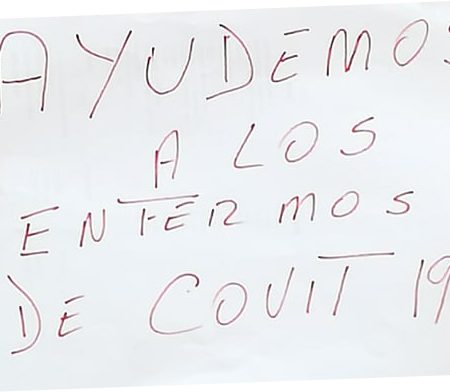 AYUDEMOS
A LOS
ENFERMOS
DE COVIT 19